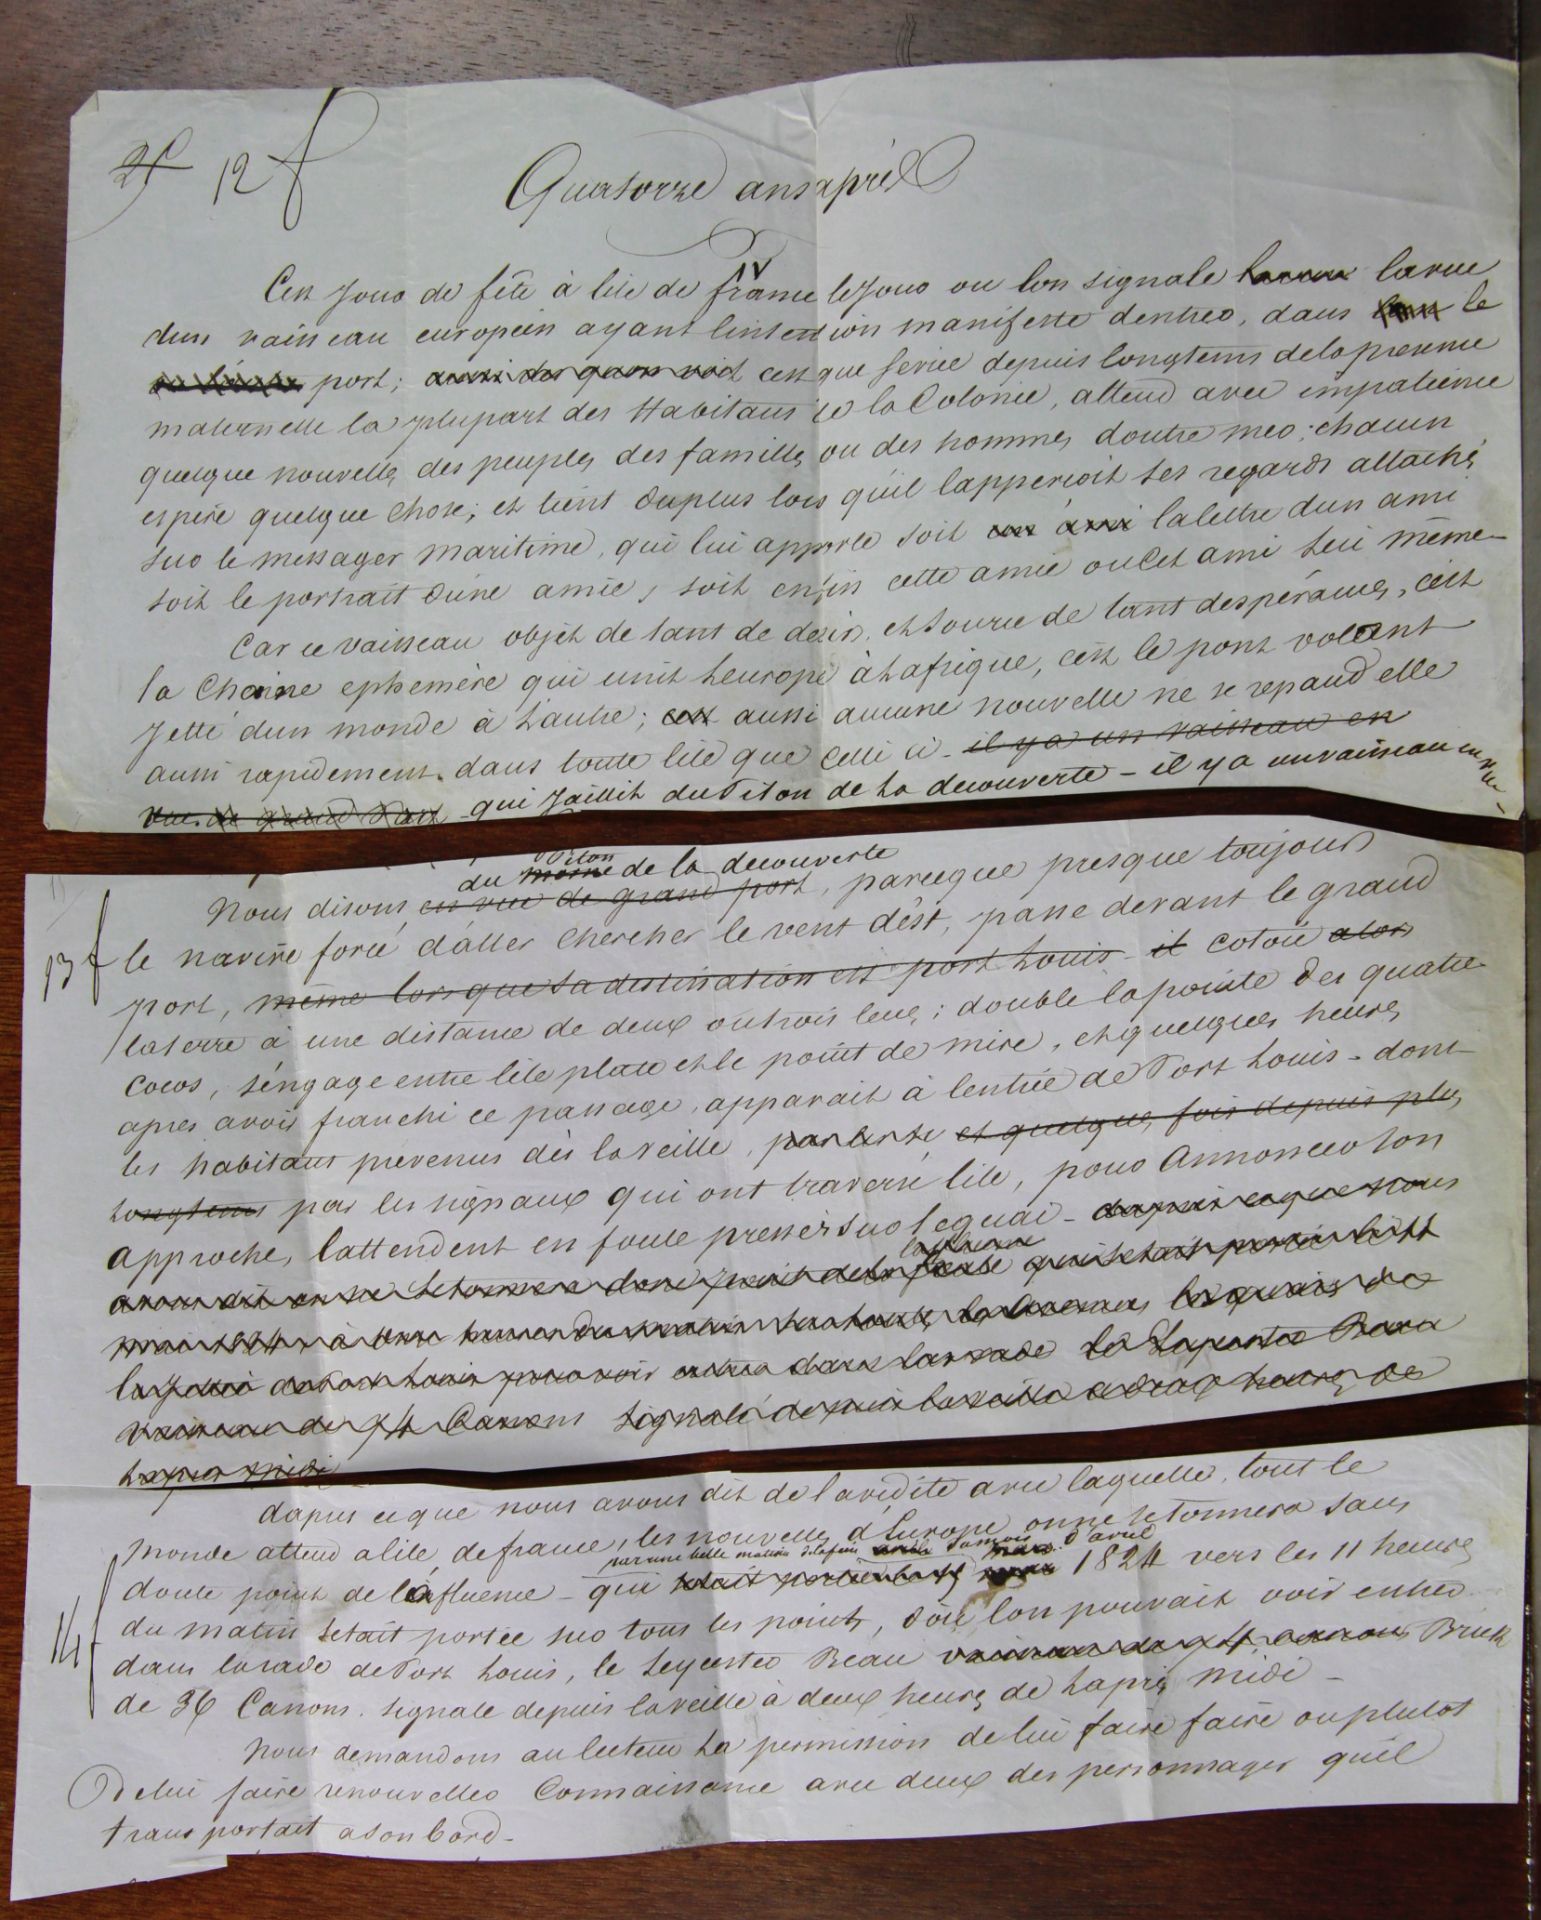 2f 12f
Quatorze ans après
IV
Cest jour de fête à lile de france le jour ou lon signale la vue
dun vaisseau européen ayant lintention manifeste dentrer, dans le
port; aussi des quon voit cest que sevrée depuis longtems de la presence
maternelle la plupart des Habitans de la Colonie, attend avec impatience
quelque nouvelle des peuples des familles ou des hommes doutre mer: chacun
espère quelque chose; et tient du plus loin qu'il lapperçoit ses regards attachés
sur le messager maritime, qui lui apporte soit un ami la lettre dun ami
soit le portrait d'une amie, soit enfin cette amie ou cet ami lui même
Car ce vaisseau objet de tant de desirs, et source de tant despérances, c'est
la Chaine ephemère qui unit Leurope à Lafrique, cest le pont volant
Jetté dun monde à Lautre; cest aussi aucune nouvelle ne se repand elle
aussi rapidement, dans toute lile que celle ci - il y a un vaisseau en
vue de grand Port qui jaillit du Piton de la decouverte - il y a un vaisseau en vue -
du morne Piton de la decouverte
13f
Nous disons en vue de grand port, parceque presque toujours
le navire forcé d'aller Chercher le vent d'est, passe devant le grand
port, même lorsque sa destination est port Louis - il cotoie alors
la terre à une distance de deux ou trois lieues; double la pointe des quatre
cocos, s'engage entre lile plate et le point de mire, et quelques heures
apres avoir franchi ce passage, apparait à lentrée de Port Louis - dont
les habitans prevenus dès la veille, et quelque fois depuis plus
longtems par les signaux qui ont traversé lile, pour Annoncer son
approche, lattendent en foule pressés sur le quai - dapres ce que nous
avons dit on ne setonnera donc point de la foule qui setait portée
les quais de
la Jetée de Port Louis pour voir entrer dans la rade le Leycester Beau
vaisseau de 74 Canons signalé depuis la veille a deux heures de
Lapres midi
14f
dapres ce que nous avons dit de lavidité avec laquelle, tout le
Monde attend a lile de france, les nouvelles d'Europe on ne setonnera sans
par une belle matinée de la fin du mois mars d'avril
doute point de l'affluence - qui setait portée 1824 vers les 11 heures
du matin setait portée sur tous les points, doù lon pouvait voir entrer
dans la rade de Port Louis, le Leycester Beau vaisseau de 74 canons Brick
de 36 Canons. signalé depuis la veille à deux heures de Lapres midi -
Nous demandons au lecteur La permission de lui faire faire ou plutot
De lui faire renouveller Connaissance avec deux des personnages quil
transportait a son bord -